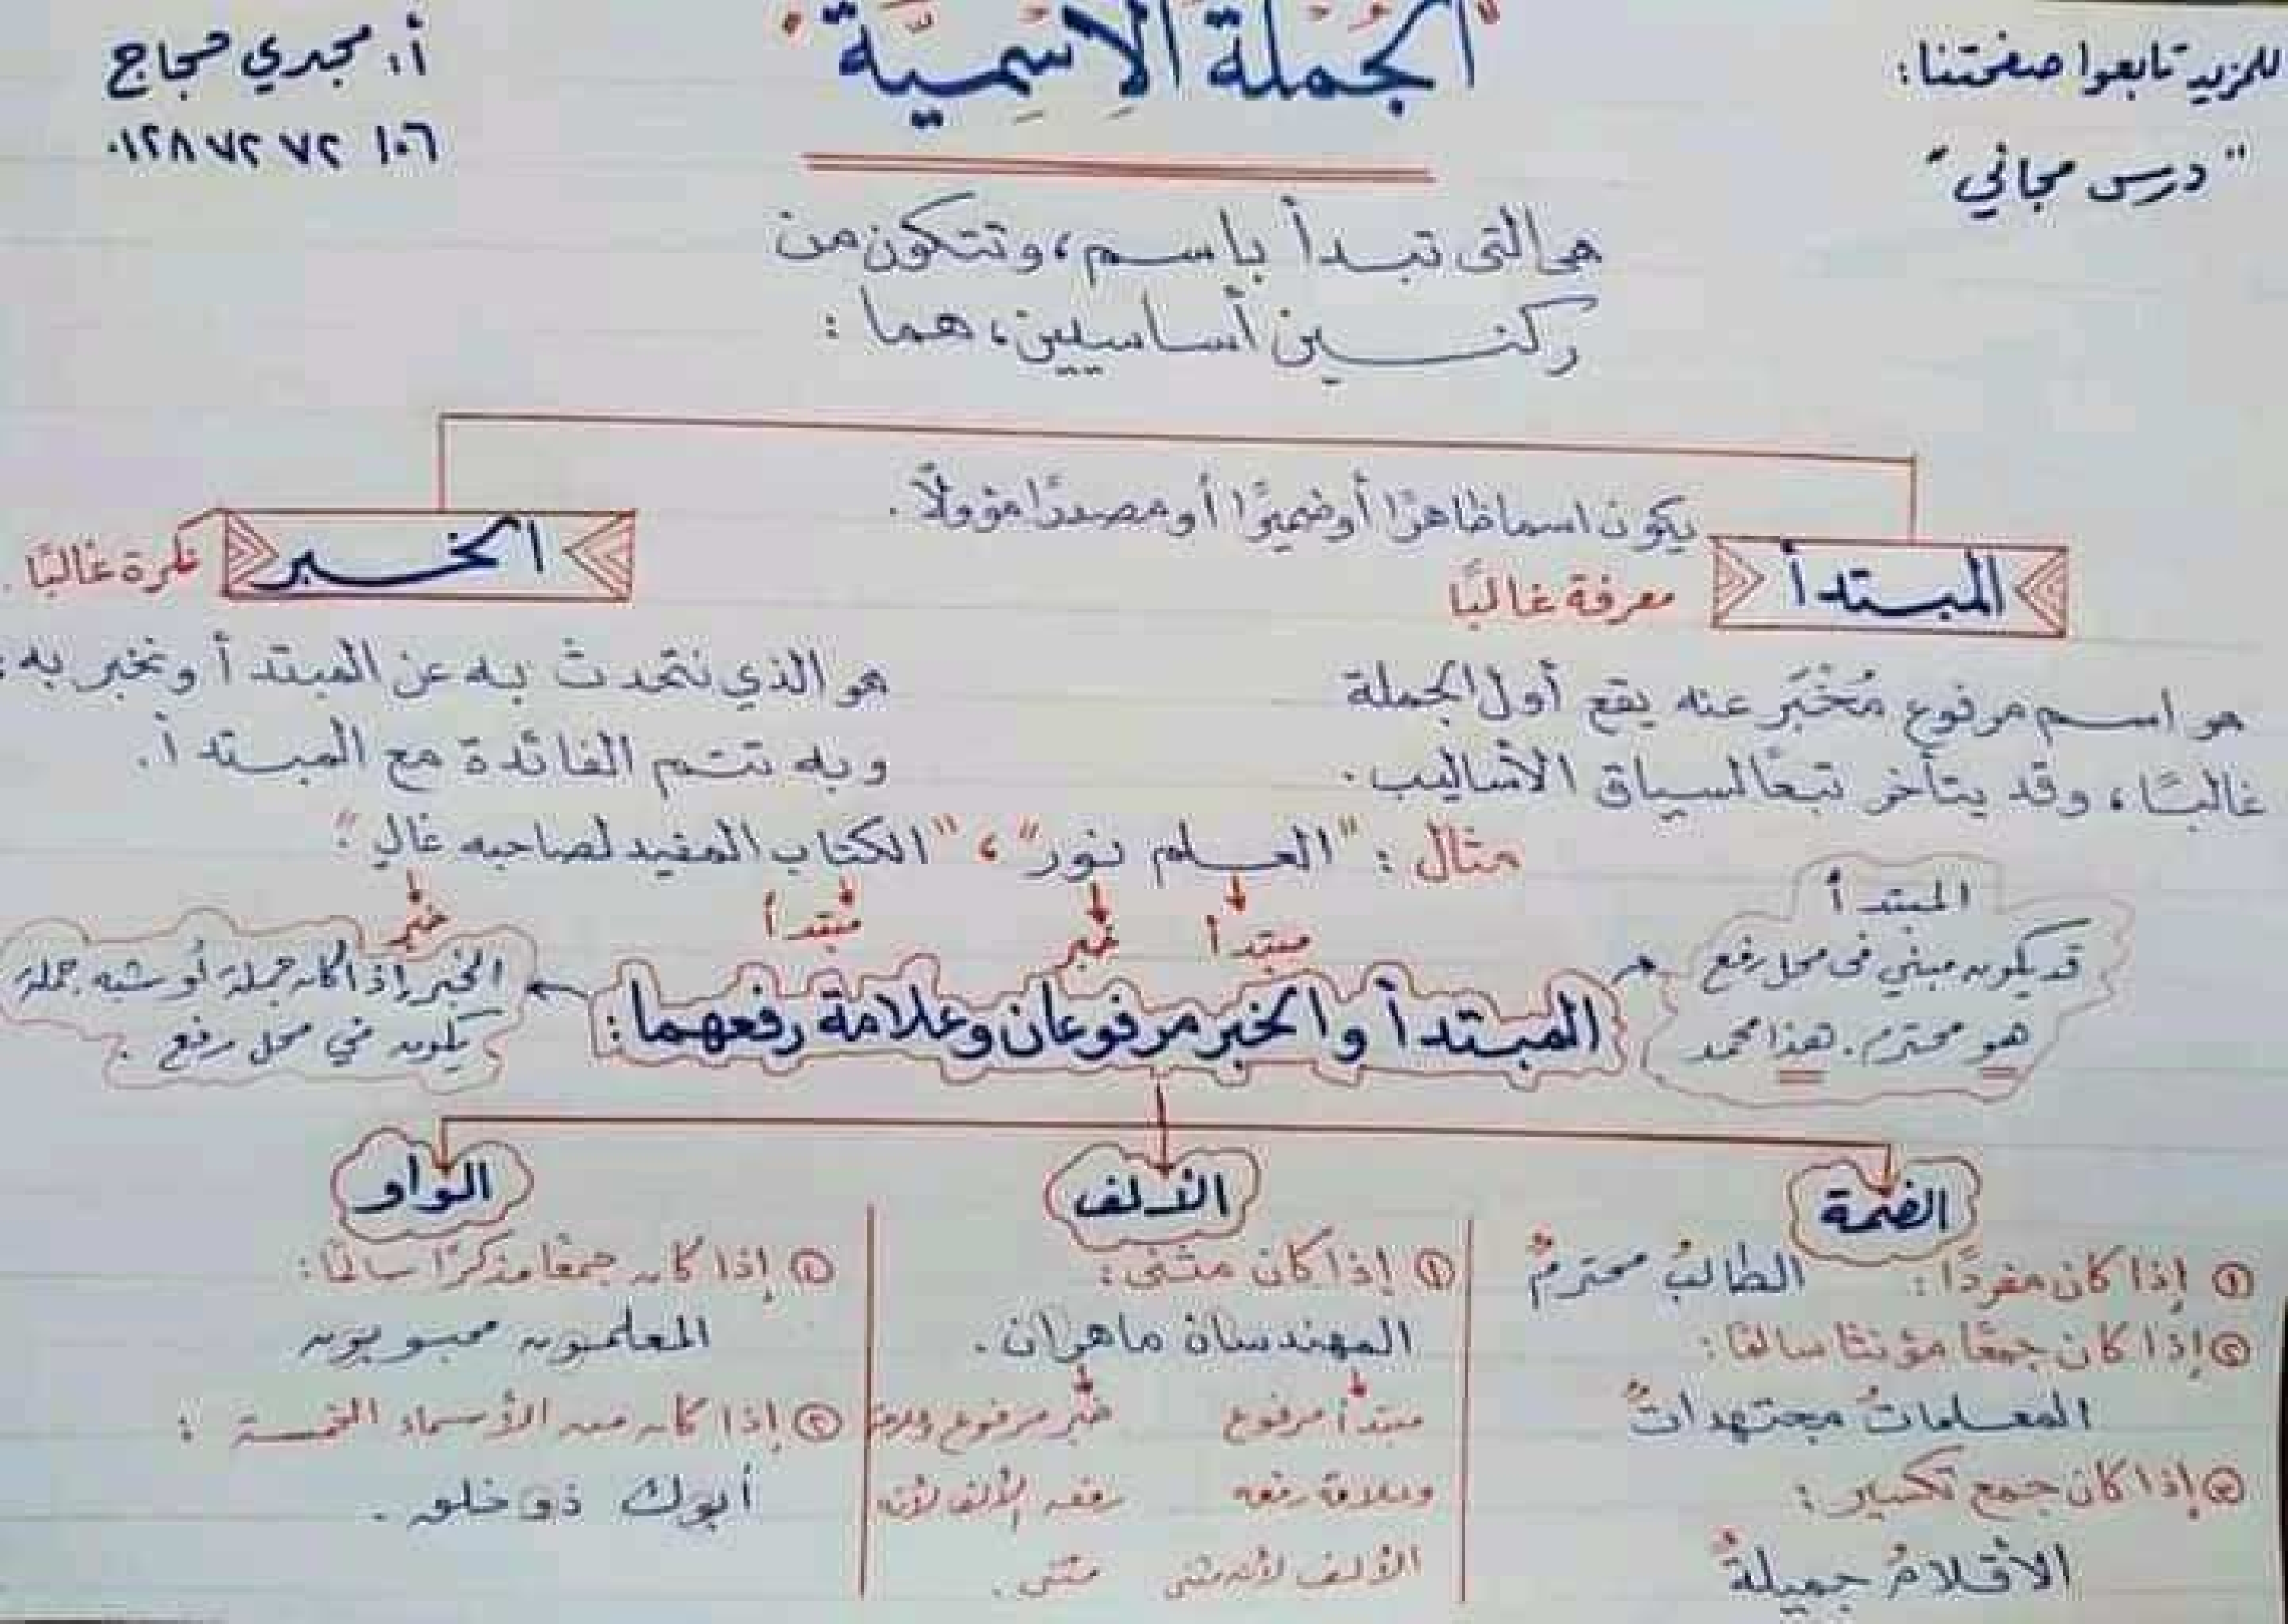 "الجُملة الاِسْمِيَّة"
للمزيد تابعوا صفحتنا:
"درس مجاني"
أ. مجدي حجاج
٠١٢٨ ٧٢ ٧٢ ١٠٦
هى التى تبدأ باسم، وتتكون من
ركنين أساسيين، هما:
المبتدأ
يكون اسما ظاهرًا أو ضميرًا أو مصدرًا مؤولاً.
معرفة غالبًا
هو اسم مرفوع مُخْبَر عنه يقع أول الجملة
غالبًا، وقد يتأخر تبعًا لسياق الأساليب.
الخبر
نكرة غالبًا.
هو الذي نتحدث به عن المبتدأ ونخبر به:
وبه تتم الفائدة مع المبتدأ.
مثال: "العلم نور"، "الكتاب المفيد لصاحبه غالي".
مبتدأ خبر مبتدأ خبر
المبتدأ
قد يكون مبني فى محل رفع
هو محترم. هذا محمد
المبتدأ والخبر مرفوعان وعلامة رفعهما:
الخبر إذا كان جملة أو شبه جملة
يكون في محل رفع.
الضمة
١ إذا كان مفردًا: الطالبُ محترمٌ
٢ إذا كان جمعًا مؤنثا سالمًا:
المعلماتُ مجتهداتٌ
٣ إذا كان جمع تكسير:
الأقلامُ جميلةٌ
الألف
١ إذا كان مثنى:
المهندسان ماهران.
مبتدأ مرفوع
وعلامة رفعه
الألف لأنه مثنى
خبر مرفوع وعلامة
رفعه الألف لأنه
مثنى.
الواو
١ إذا كان جمعًا مذكرًا سالمًا:
المعلمون محبوبون
٢ إذا كان من الأسماء الخمسة:
أبوك ذو خلق.